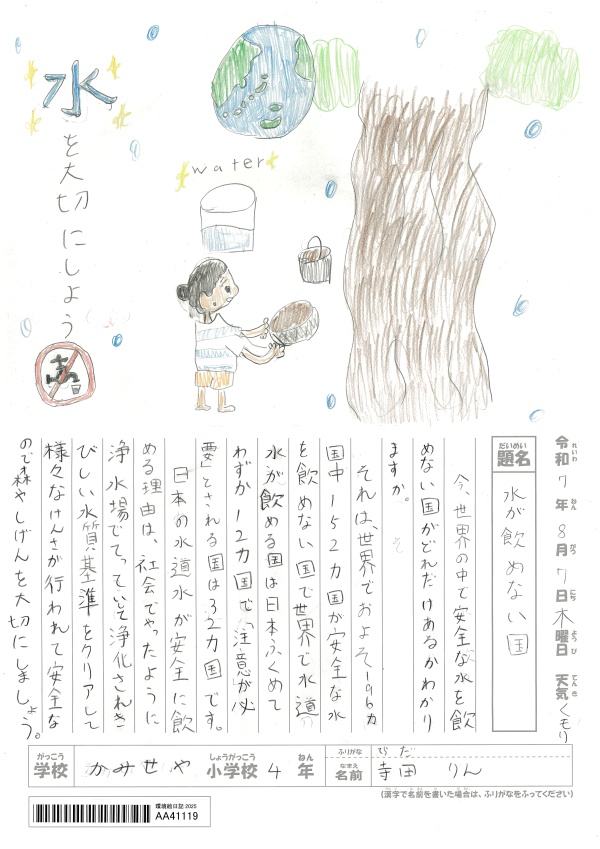 水
を大切にしよう
water
令和7年8月7日木曜日 天気くもり
れいわ ねん がつ にち ようび てんき
だいめい
題名
水が飲めない国
今、世界の中で安全な水を飲
めない国がどれだけあるかわかり
ますか。
それは、世界でおよそ196カ
国中152カ国が安全な水
を飲めない国で世界で水道
水が飲める国は日本ふくめて
わずか12カ国で「注意」が必
要」とされる国は32カ国です。
日本の水道水が安全に飲
める理由は、社会でやったように
浄水場でてっていて浄化されき
びしい水質基準をクリアして
様々なけんさが行われて安全な
ので森やしげんを大切にしましょう。
がっこう しょうがっこう ねん
学校 かみせや 小学校 4年
ふりがな てらだ
なまえ
名前 寺田 りん
(漢字で名前を書いた場合は、ふりがなをふってください)
環境絵日記 2025
AA41119